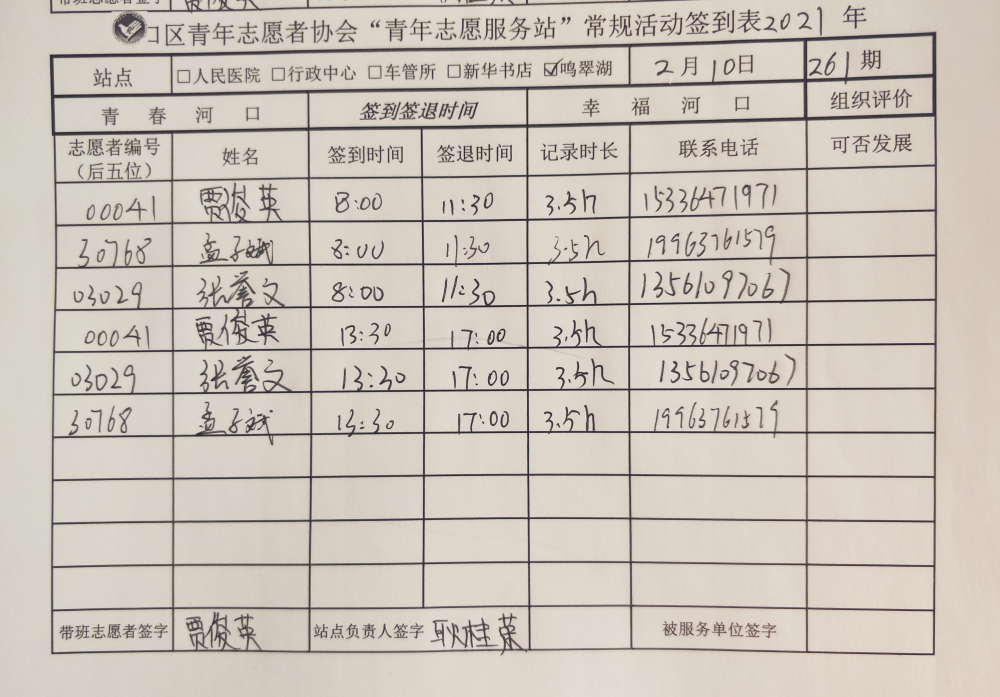 带班志愿者签字 贾俊英
口区青年志愿者协会“青年志愿服务站”常规活动签到表2021 年
站点 □人民医院 □行政中心 □车管所 □新华书店 ☑鸣翠湖 2月10日 261期
青春河口 签到签退时间 幸福河口 组织评价
志愿者编号（后五位） 姓名 签到时间 签退时间 记录时长 联系电话 可否发展
00041 贾俊英 8:00 11:30 3.5h 15336471971
30768 孟子斌 8:00 11:30 3.5h 19963761579
03029 张誉文 8:00 11:30 3.5h 13561097067
00041 贾俊英 13:30 17:00 3.5h 15336471971
03029 张誉文 13:30 17:00 3.5h 13561097067
30768 孟子斌 13:30 17:00 3.5h 19963761579
带班志愿者签字 贾俊英 站点负责人签字 耿桂荣 被服务单位签字